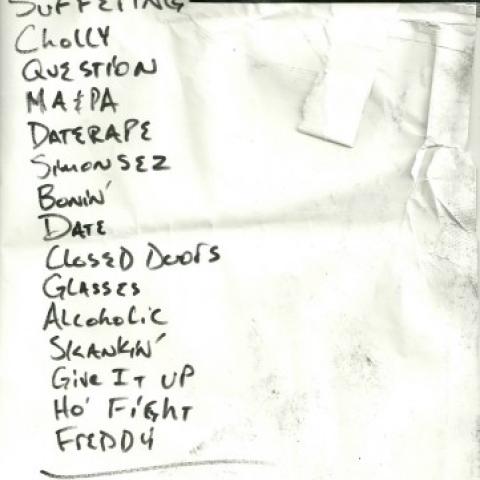 SUFFERING
CHOLLY
QUESTION
MA & PA
DATERAPE
SIMON SEZ
BONIN'
DATE
CLOSED DOORS
GLASSES
ALCOHOLIC
SKANKIN'
GIVE IT UP
HO' FIGHT
FREDDY